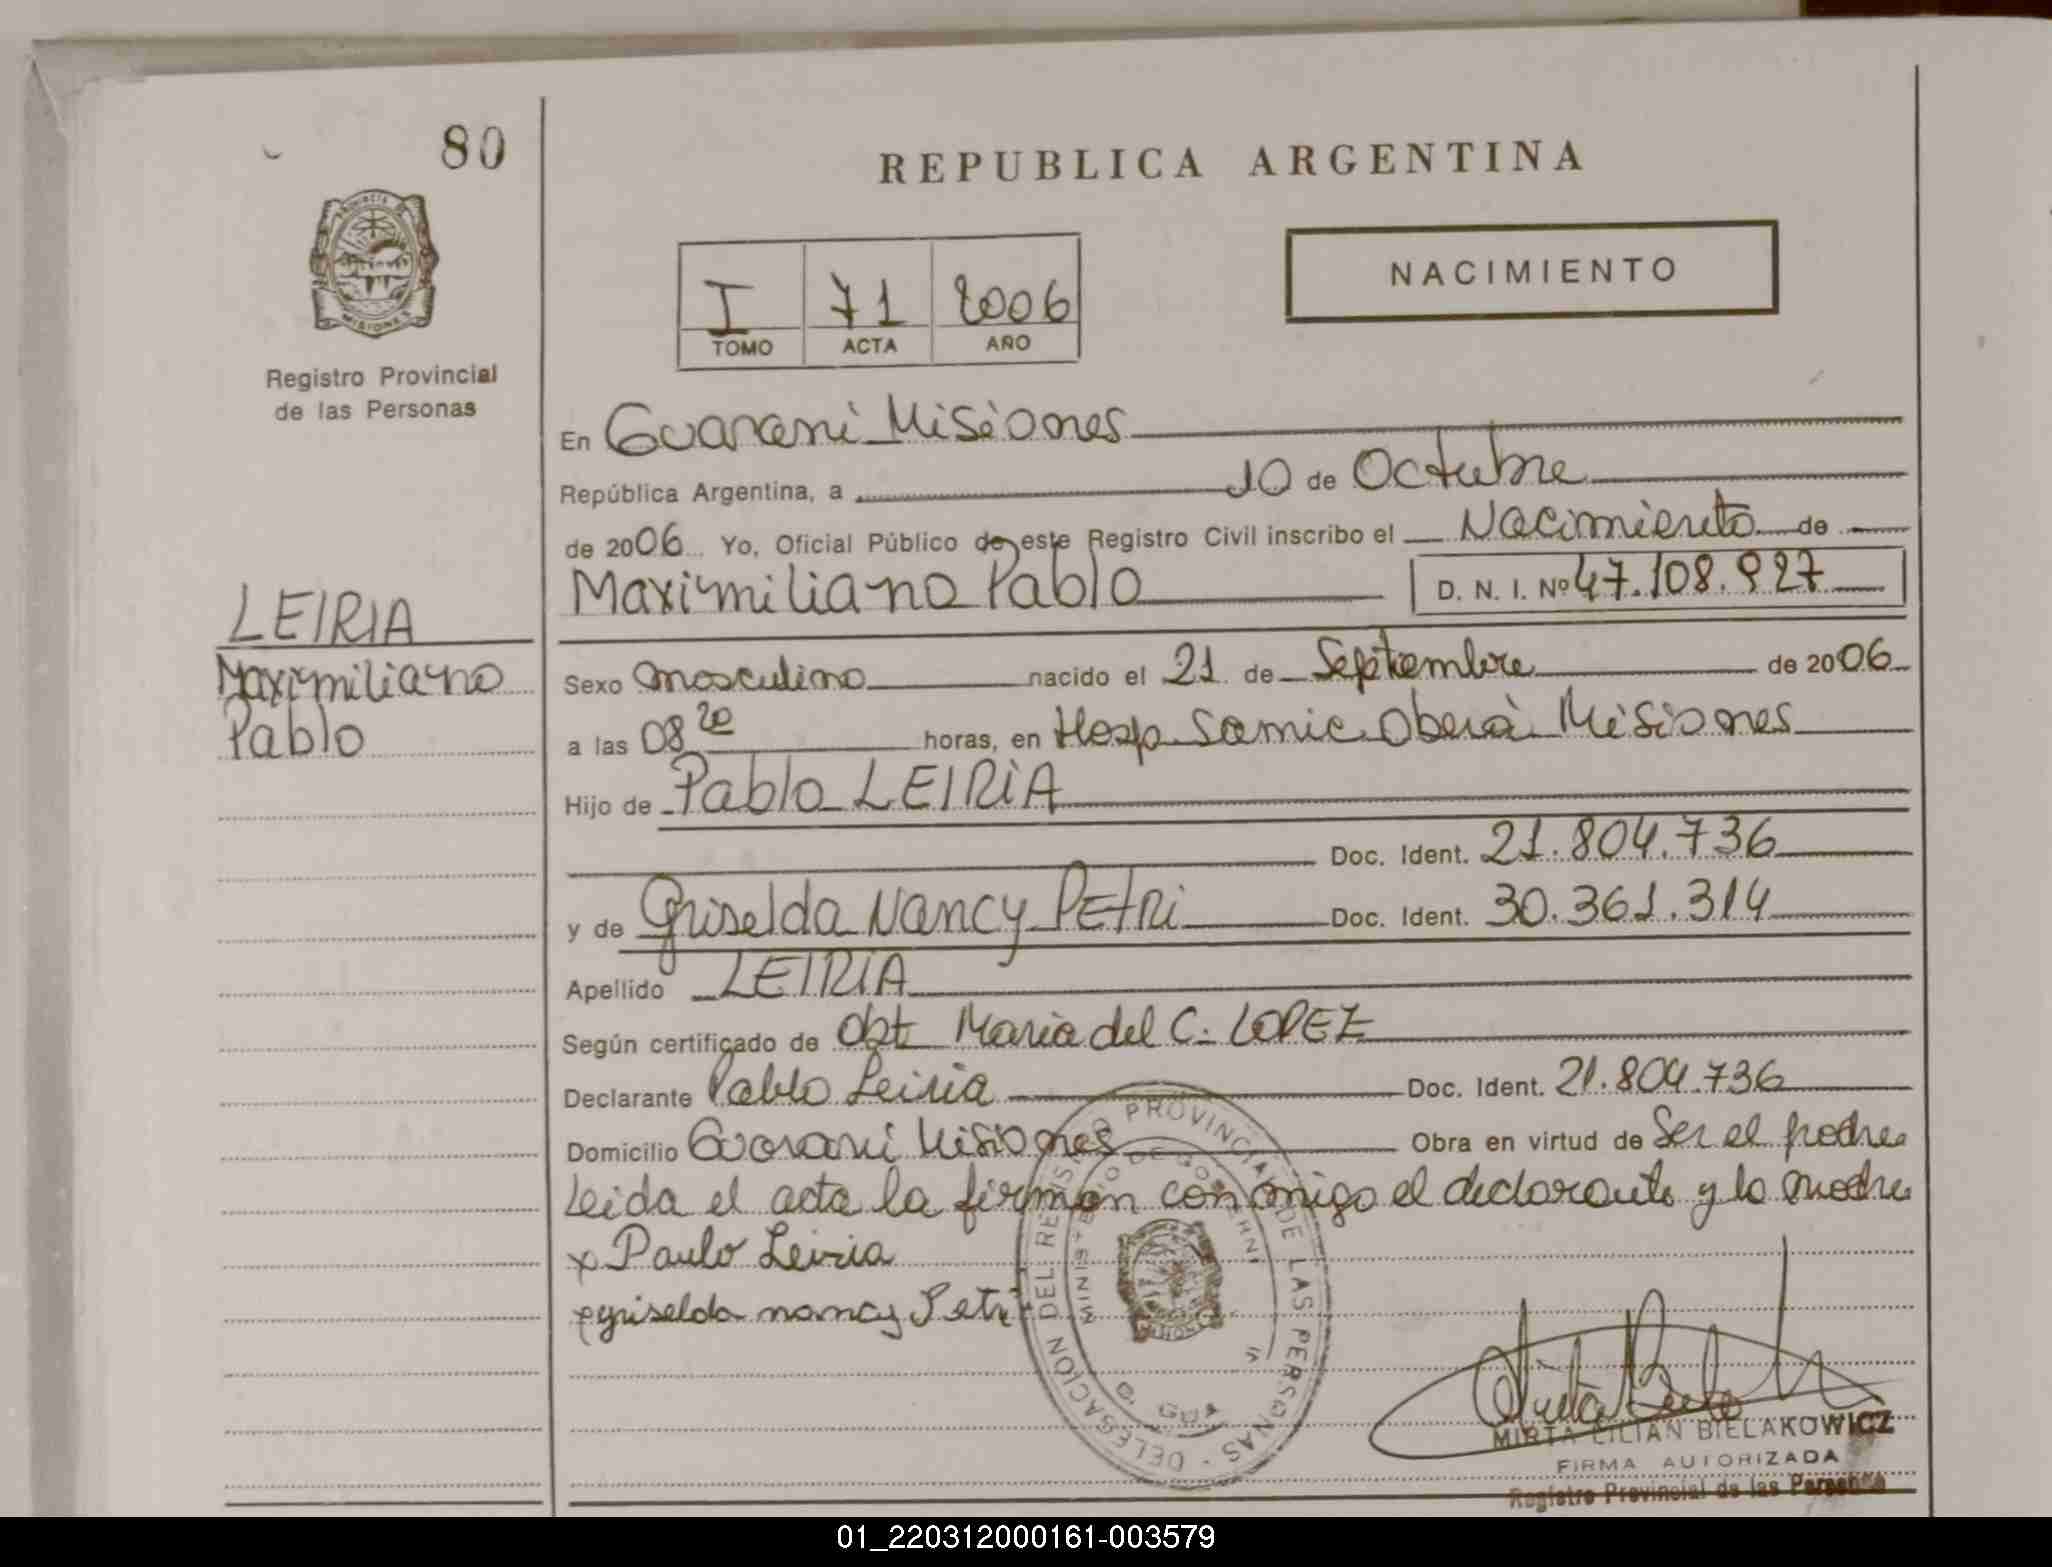 80
REPUBLICA ARGENTINA
PROVINCIA DE
MISIONES
Registro Provincial
de las Personas
NACIMIENTO
I 71 2006
TOMO ACTA AÑO
En Guarani Misiones
República Argentina, a 10 de Octubre
de 2006 Yo, Oficial Público de este Registro Civil inscribo el Nacimiento de
Maximiliano Pablo D. N. I. Nº 47.108.927
LEIRIA
Maximiliano
Pablo
Sexo masculino nacido el 21 de Septiembre de 2006
a las 08 20 horas, en Hosp Samic Oberà Misiones
Hijo de Pablo LEIRIA
Doc. Ident. 21.804.736
y de Griselda Nancy PEtRi Doc. Ident. 30.361.314
Apellido LEIRIA
Según certificado de Obt Maria del C. LOPEZ
Declarante Pablo Leiria Doc. Ident. 21.804.736
Domicilio Guarani Misiones Obra en virtud de Ser el padre
Leida el acta la firman conmigo el declarante y la madre
x Paulo Leiria
x griselda nancy Petri
DELEGACION DEL REGISTRO PROVINCIAL DE LAS PERSONAS
MINISTERIO DE GOBIERNO
MIRTA LILIAN BIELAKOWICZ
FIRMA AUTORIZADA
Registro Provincial de las Personas
01_220312000161-003579